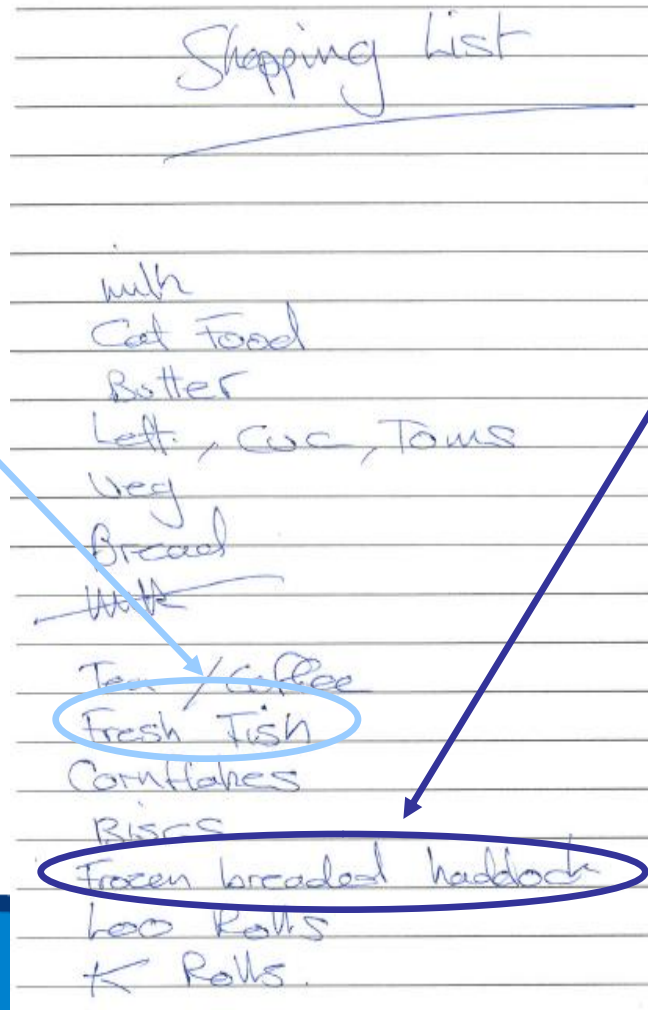 Shopping List
milk
Cat Food
Butter
Lett., Cuc, Toms
Veg
Bread
Milk
Tea / Coffee
Fresh Fish
Cornflakes
Biscs
Frozen breaded haddock
Loo Rolls
K Rolls.